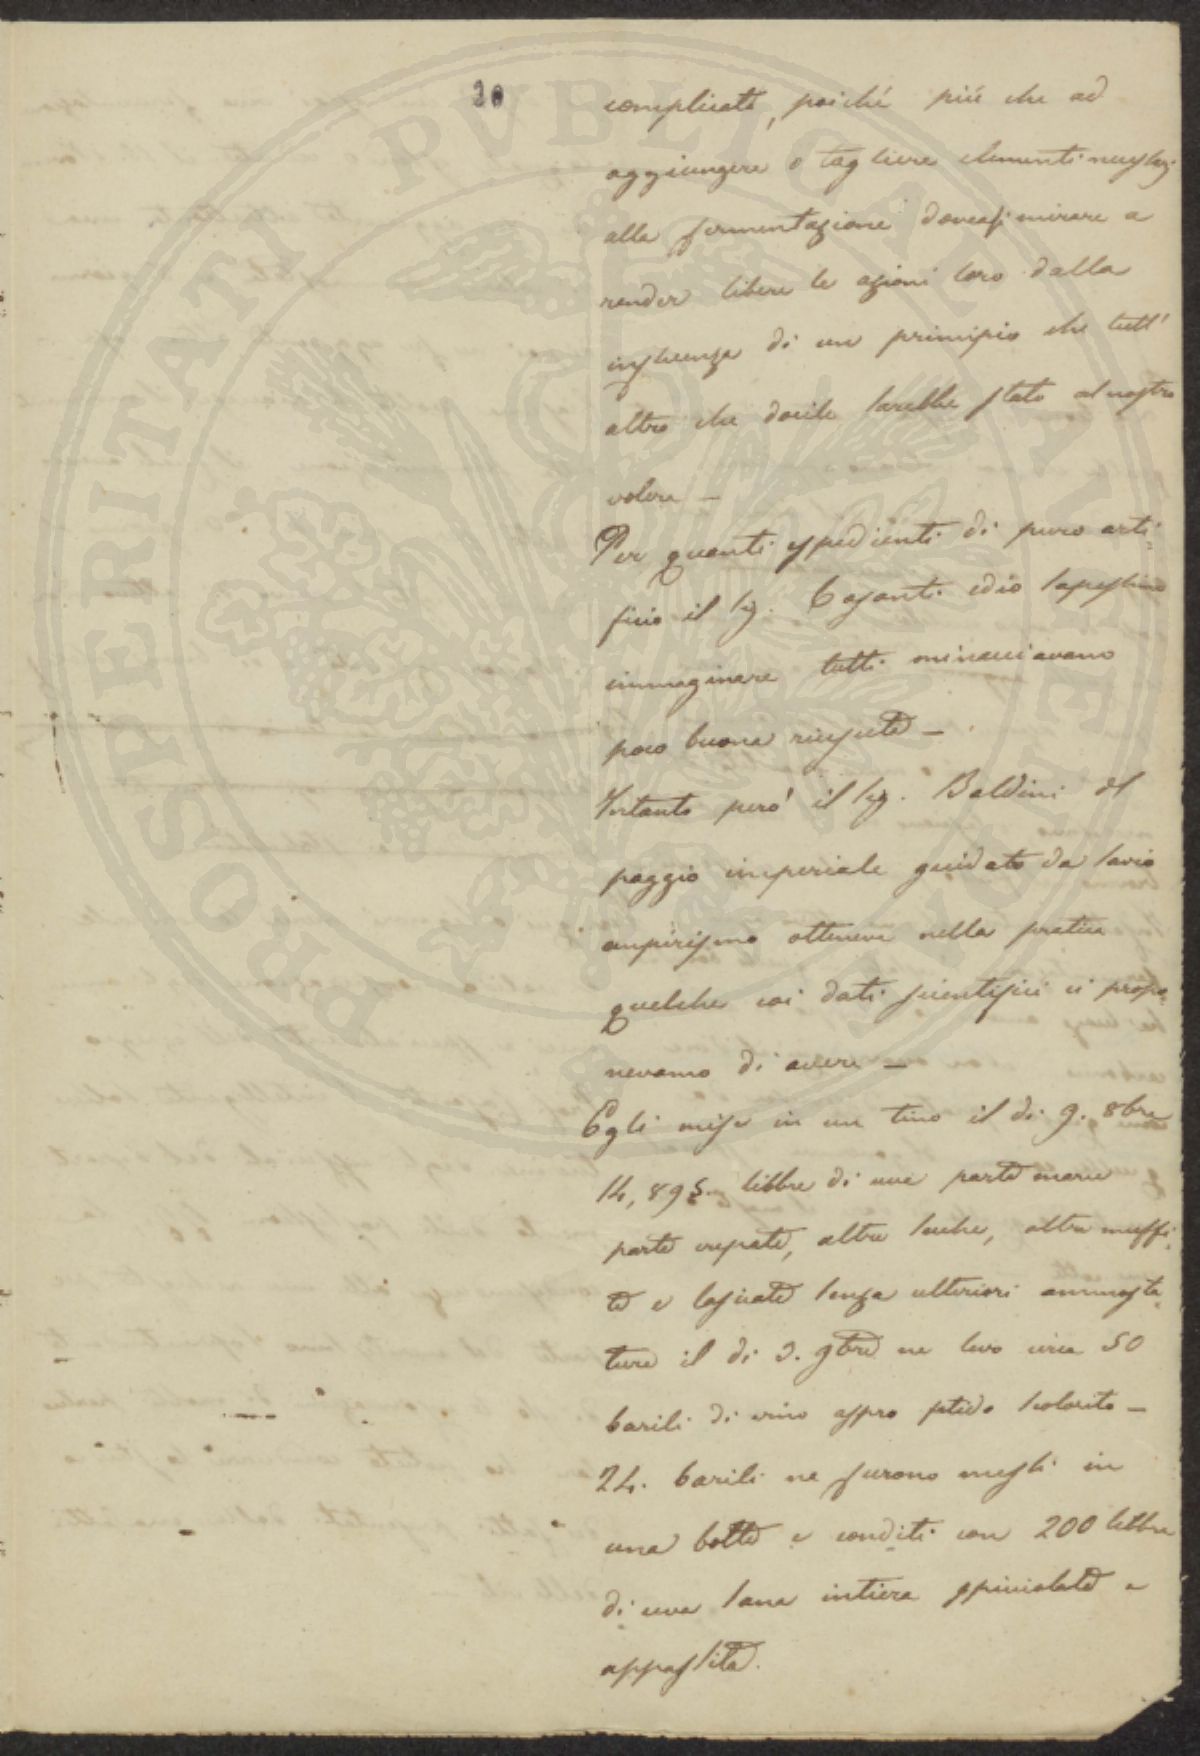 20
PROSPERITATI PUBLICAE AUGENDAE
complicate, poiché più che ad
aggiungere o togliere elementi necessarj
alla fermentazione doveasi mirare a
render libere le azioni loro dalla
influenza di un principio che tutt'
altro che docile sarebbe stato al nostro
volere —
Per quanti espedienti di puro arti-
ficio il Sig. Casanti ed io sapessimo
immaginare tutti minacciavano
poco buona riuscita —
Intanto però il Sig. Baldini al
poggio imperiale guidato da savio
empirismo otteneva nella pratica
quelche coi dati scientifici ci propo-
nevamo di avere —
Egli mise in un tino il dì 9. 8bre
14,895. libbre di uve parte marce
parte crepate, altre secche, altre muffi-
te e lasciate senza ulteriori ammosta-
ture il dì 3. 9bre ne levò circa 50
barili di vino aspro fetido scolorito —
24. barili ne furono messi in
una botte e conditi con 200 libbre
di uva sana intiera spicciolata e
appassita.